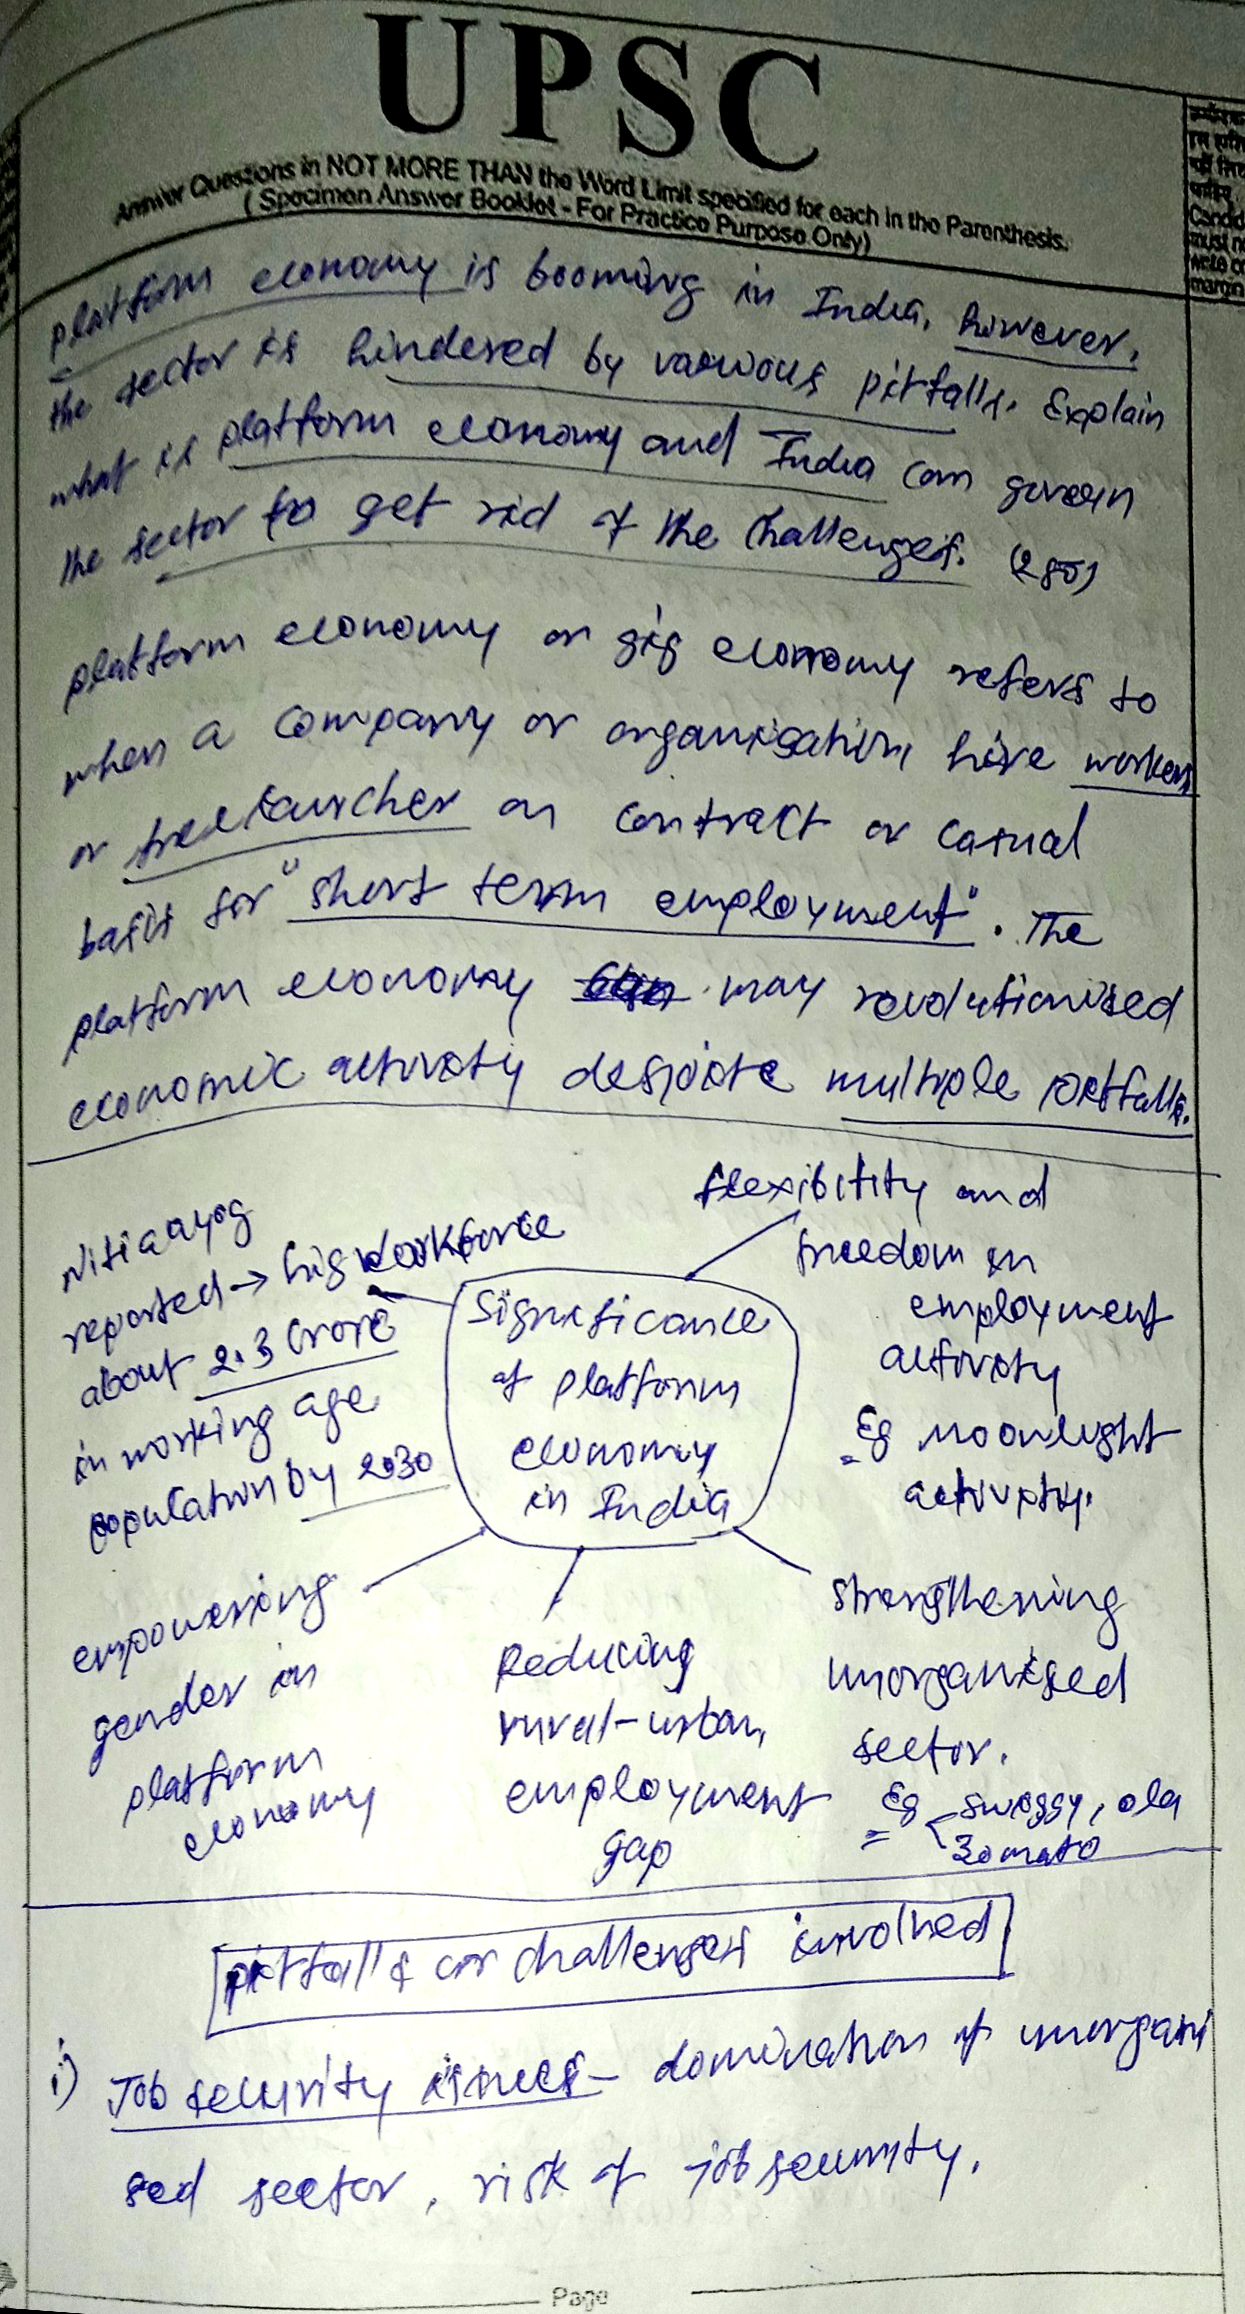 UPSC
Answer Questions in NOT MORE THAN the Word Limit specified for each in the Parenthesis.
( Specimen Answer Booklet - For Practice Purpose Only)
Candid
must n
write o
margin
platform economy is booming in India, however,
the sector is hindered by various pitfalls. Explain
what is platform economy and India can govern
the sector to get rid of the challenges. (250)
platform economy or gig economy refers to
when a company or organisation hire workers
or freelauncher on contract or casual
basis for "short term employment". The
platform economy may revolutionised
economic activity despite multiple pitfalls.
flexibility and
freedom in
employment
activity
Eg moonlight
activity.
Niti aayog
reported → gig workforce
about 2.3 crore
in working age
population by 2030
Significance
of platform
economy
in India
empowering
gender in
platform
economy
Reducing
rural-urban
employment
gap
strengthening
unorganised
sector.
Eg swiggy, ola
Zomato
pitfalls or challenges involved
i) Job security issues - domination of unorgani
sed sector, risk of job security.
Page